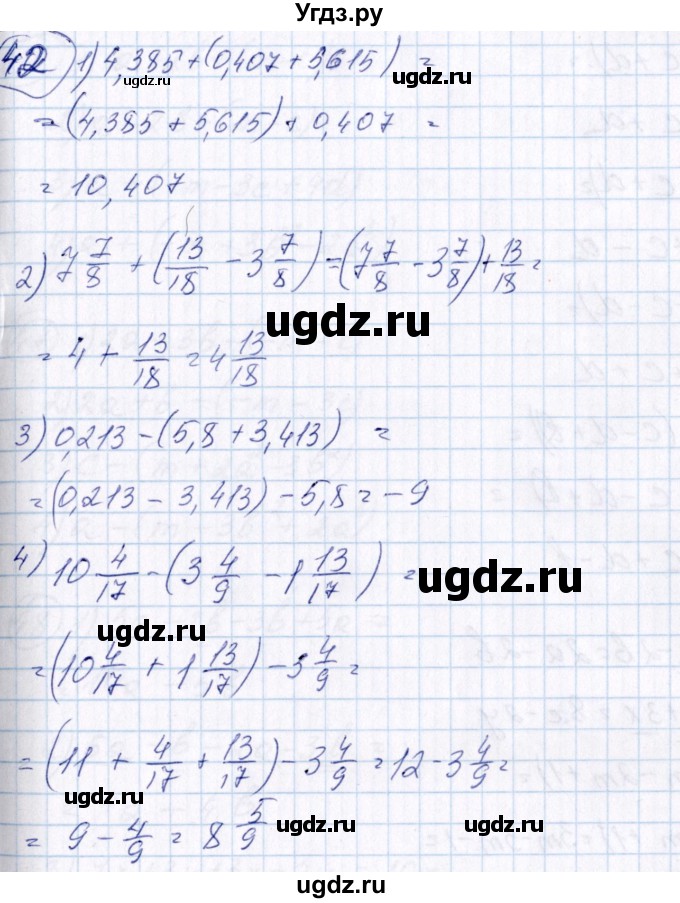 Угдз.ру
42) 1) 4,385 + (0,407 + 5,615) =
ugdz.ru
ugdz.ru
= (4,385 + 5,615) + 0,407 =
= 10,407
2) 7 7/8 + (13/18 - 3 7/8) = (7 7/8 - 3 7/8) + 13/18 =
ugdz.ru
ugdz.ru
= 4 + 13/18 = 4 13/18
3) 0,213 - (5,8 + 3,413) =
= (0,213 - 3,413) - 5,8 = -9
4) 10 4/17 - (3 4/9 - 1 13/17) =
ugdz.ru
ugdz.ru
= (10 4/17 + 1 13/17) - 3 4/9 =
= (11 + 4/17 + 13/17) - 3 4/9 = 12 - 3 4/9 =
= 9 - 4/9 = 8 5/9
ugdz.ru
ugdz.ru
ugdz.ru